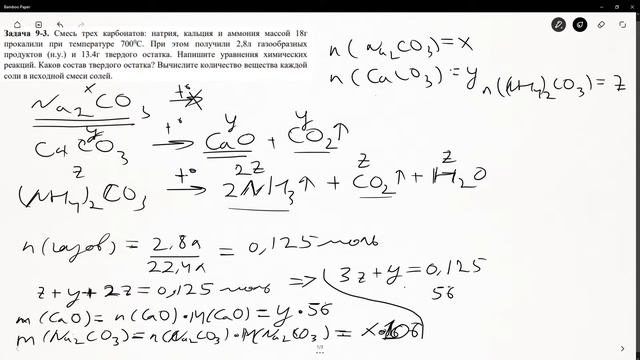 Bamboo Paper
Задача 9-3. Смесь трех карбонатов: натрия, кальция и аммония массой 18г
прокалили при температуре 700⁰С. При этом получили 2,8л газообразных
продуктов (н.у.) и 13.4г твердого остатка. Напишите уравнения химических
реакций. Каков состав твердого остатка? Вычислите количество вещества каждой
соли в исходной смеси солей.
n(Na₂CO₃)=x
n(CaCO₃)=y n((NH₄)₂CO₃)=z
x
Na₂CO₃ t°
y y y
CaCO₃ t° → CaO + CO₂↑
z 2z z z
(NH₄)₂CO₃ t° → 2NH₃↑ + CO₂↑ + H₂O
n(газов) = 2,8л / 22,4л = 0,125 моль
z+y+2z=0,125 моль => 3z+y=0,125
56
m(CaO)=n(CaO)·M(CaO)=y·56
m(Na₂CO₃)=n(Na₂CO₃)·M(Na₂CO₃)=x·106
1/3